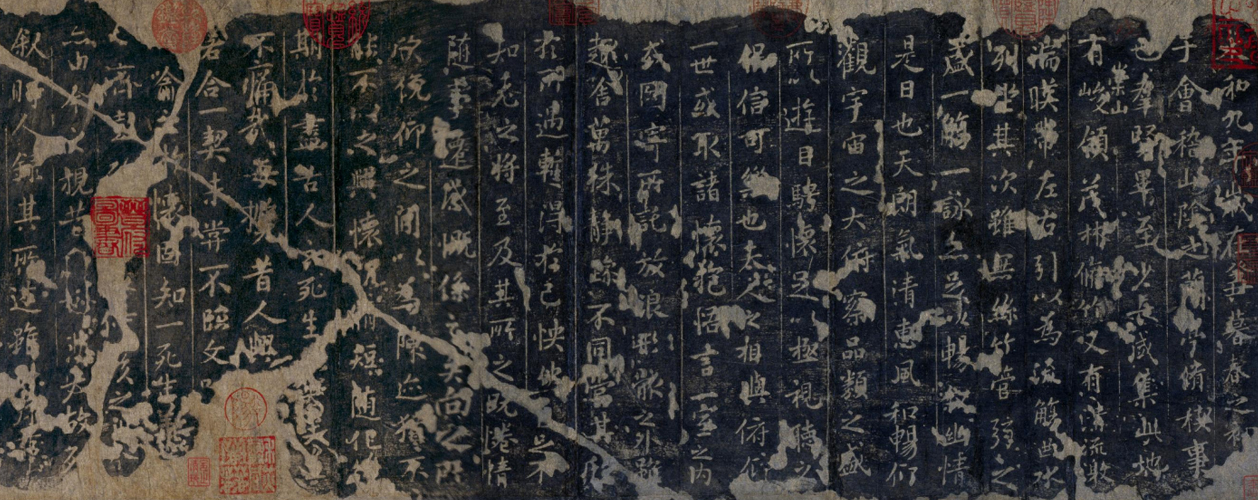 永和九年歲在癸丑暮春之初
于會稽山陰之蘭亭脩稧事
也羣賢畢至少長咸集此地
有崇山峻領茂林脩竹又有清流激
湍暎帶左右引以為流觴曲水
列坐其次雖無絲竹管弦之
盛一觴一詠亦足以暢敘幽情
是日也天朗氣清惠風和暢仰
觀宇宙之大俯察品類之盛
所以遊目騁懷足以極視聽之
娛信可樂也夫人之相與俯仰
一世或取諸懷抱悟言一室之內
或因寄所託放浪形骸之外雖
趣舍萬殊靜躁不同當其欣
於所遇暫得於己怏然自足不
知老之將至及其所之既惓情
隨事遷感慨係之矣向之所
欣俛仰之閒以為陳迹猶不
能不以之興懷況脩短隨化
期於盡古人云死生亦大矣
不痛哉每攬昔人興
若合一契未嘗不臨文
喻之於懷固知一死生為
齊彭
亦由今之視昔悲夫故列
敘時人錄其所述雖世殊